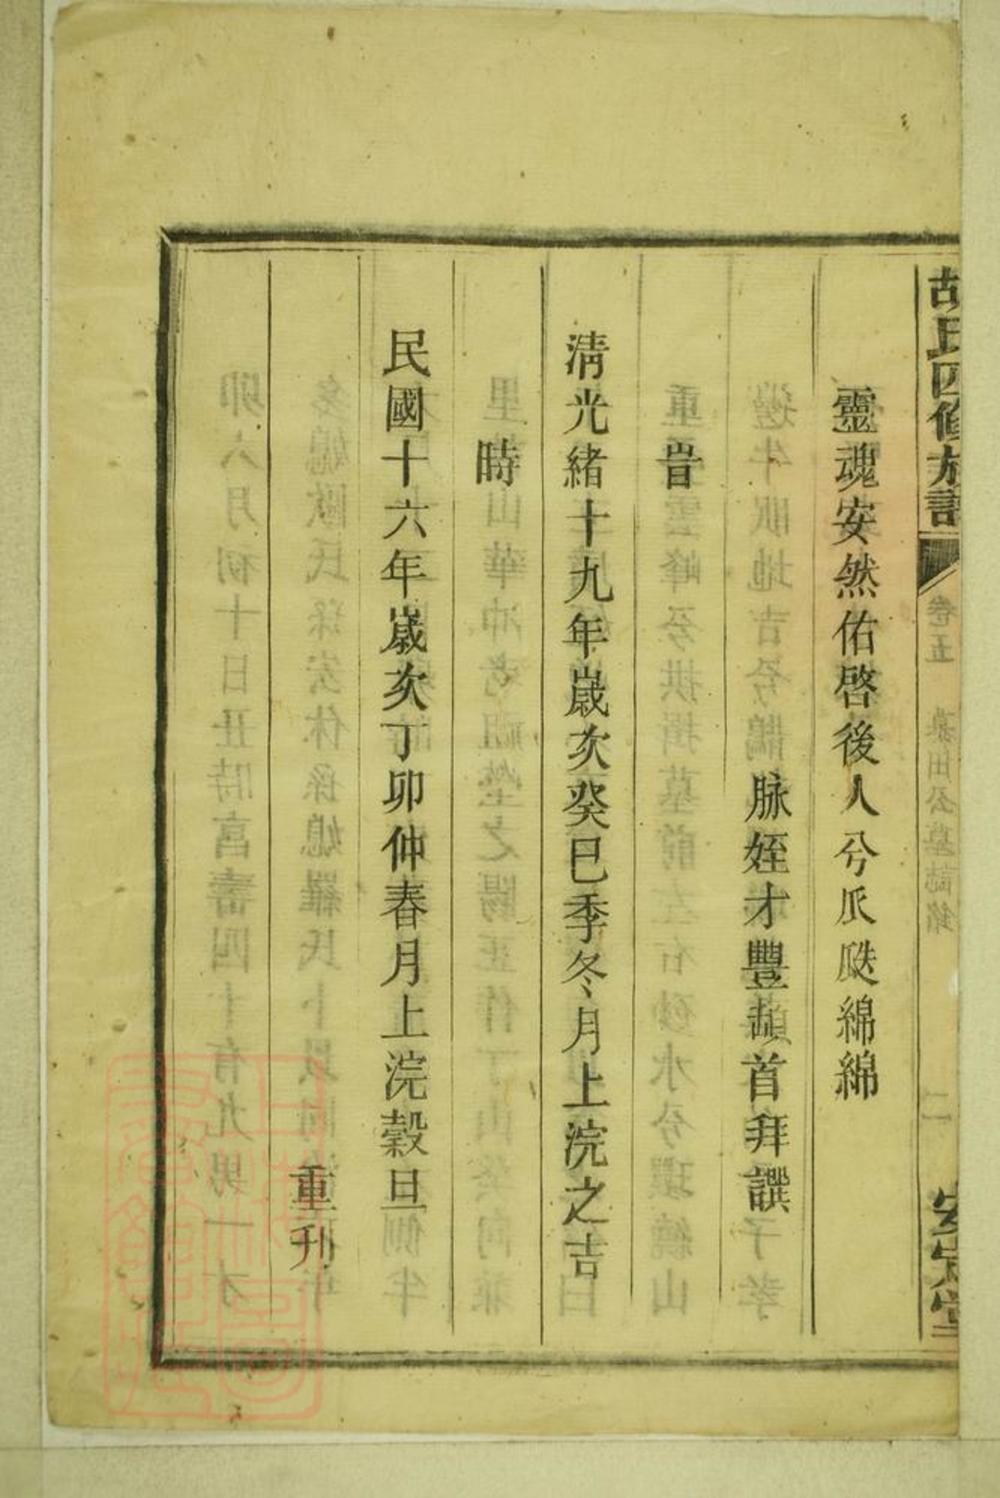 胡氏四修族譜
卷五
墓田公墓誌銘
二
安定堂
靈魂安然佑啓後人兮瓜瓞綿綿
脉姪才豐頓首拜譔
清光緒十九年歲次癸巳季冬月上浣之吉
旹
時
民國十六年歲次丁卯仲春月上浣穀旦
重刋